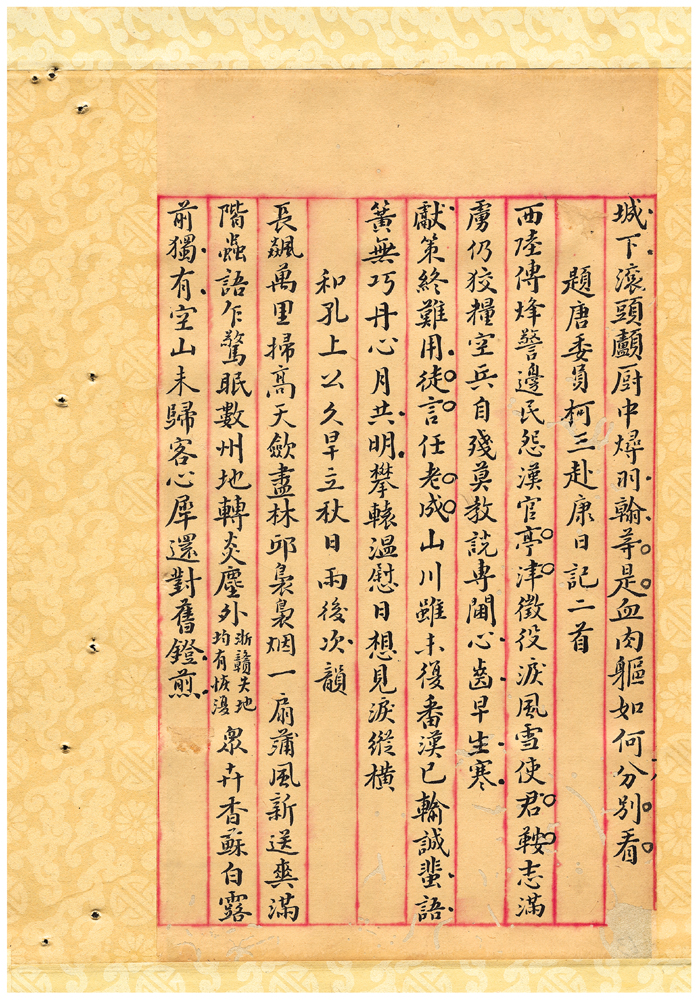 城下滾頭顱厨中燖羽翰等是血肉軀如何分別看
題唐委員柯三赴康日記二首
西陸傳烽警邊民怨漢官亭津徵役淚風雪使君鞍志滿
虜仍狡糧空兵自殘莫教説專閫心齒早生寒
獻策終難用徒言任老成山川雖未復番漢已輸誠蜚語
簧無巧丹心月共明攀轅溫慰日想見淚縱橫
和孔上公久旱立秋日雨後次韻
長飆萬里掃高天歛盡林邱裊裊烟一扇蒲風新送爽滿
階蟲語乍驚眠數州地轉炎塵外浙贛失地均有恢復衆卉香蘇白露
前獨有空山未歸客心犀還對舊鐙煎